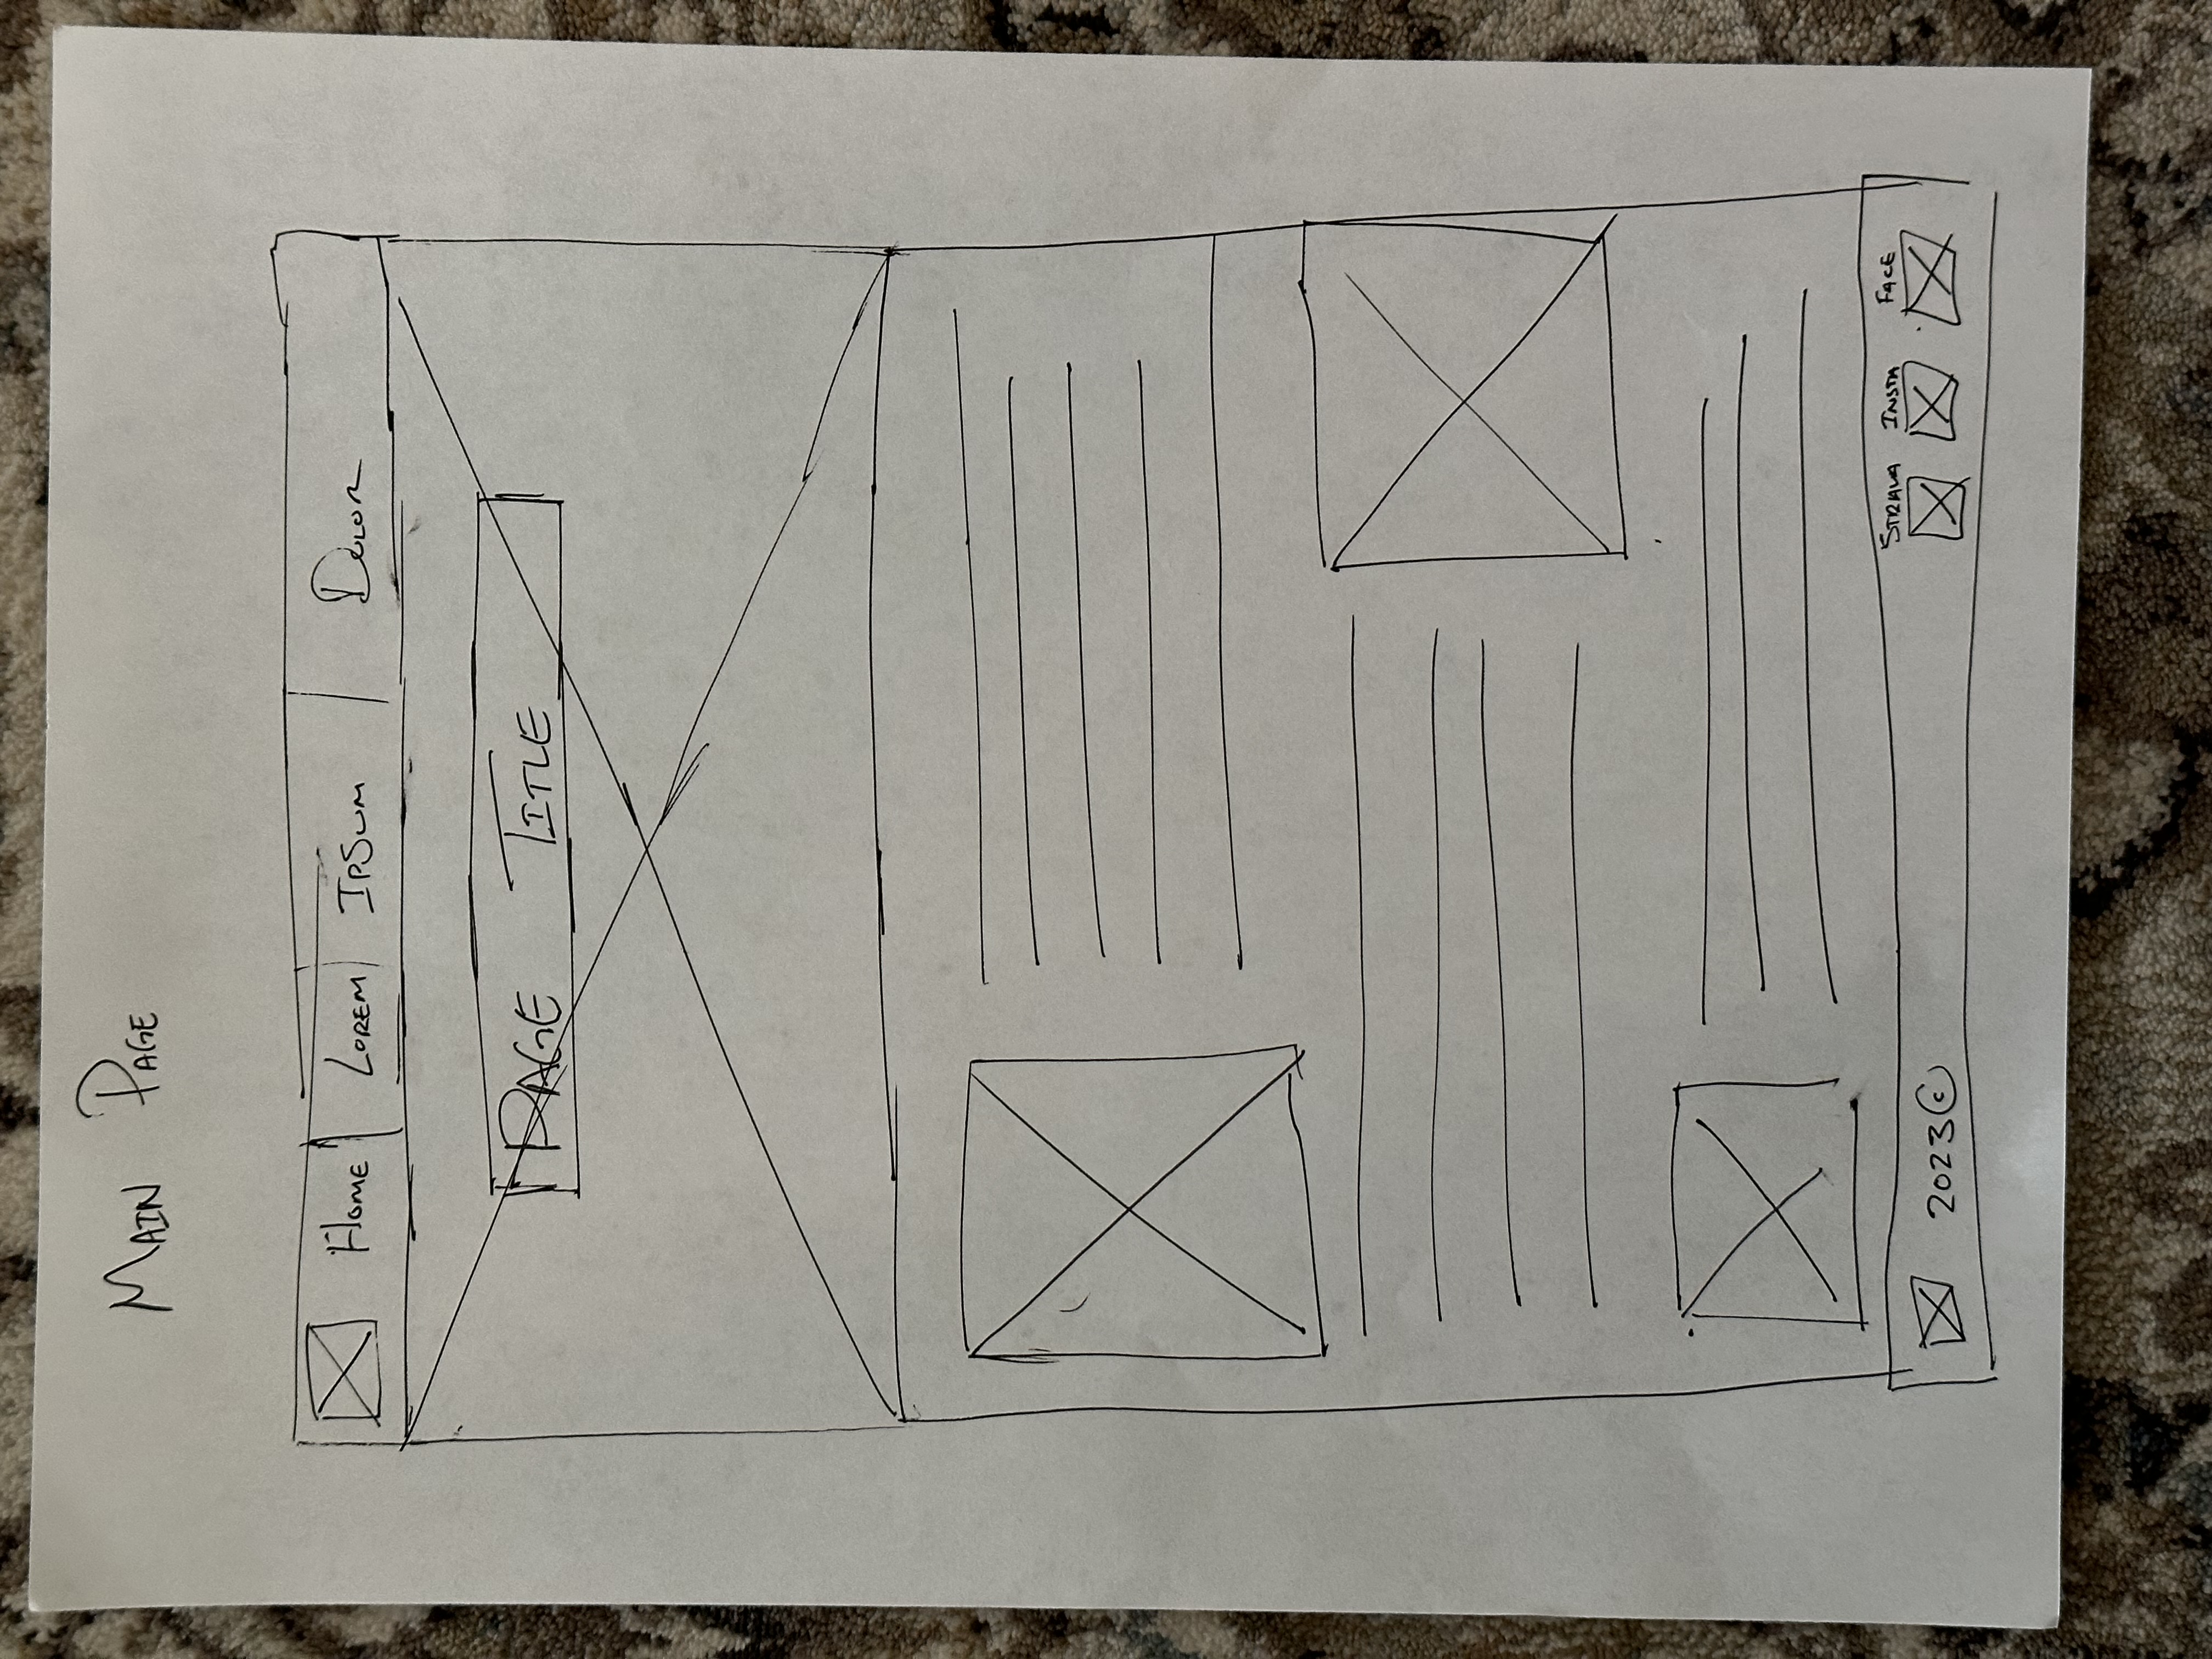 MAIN PAGE
HOME LOREM IPSUM DOLOR
PAGE TITLE
STRAVA INSTA FACE
2023©